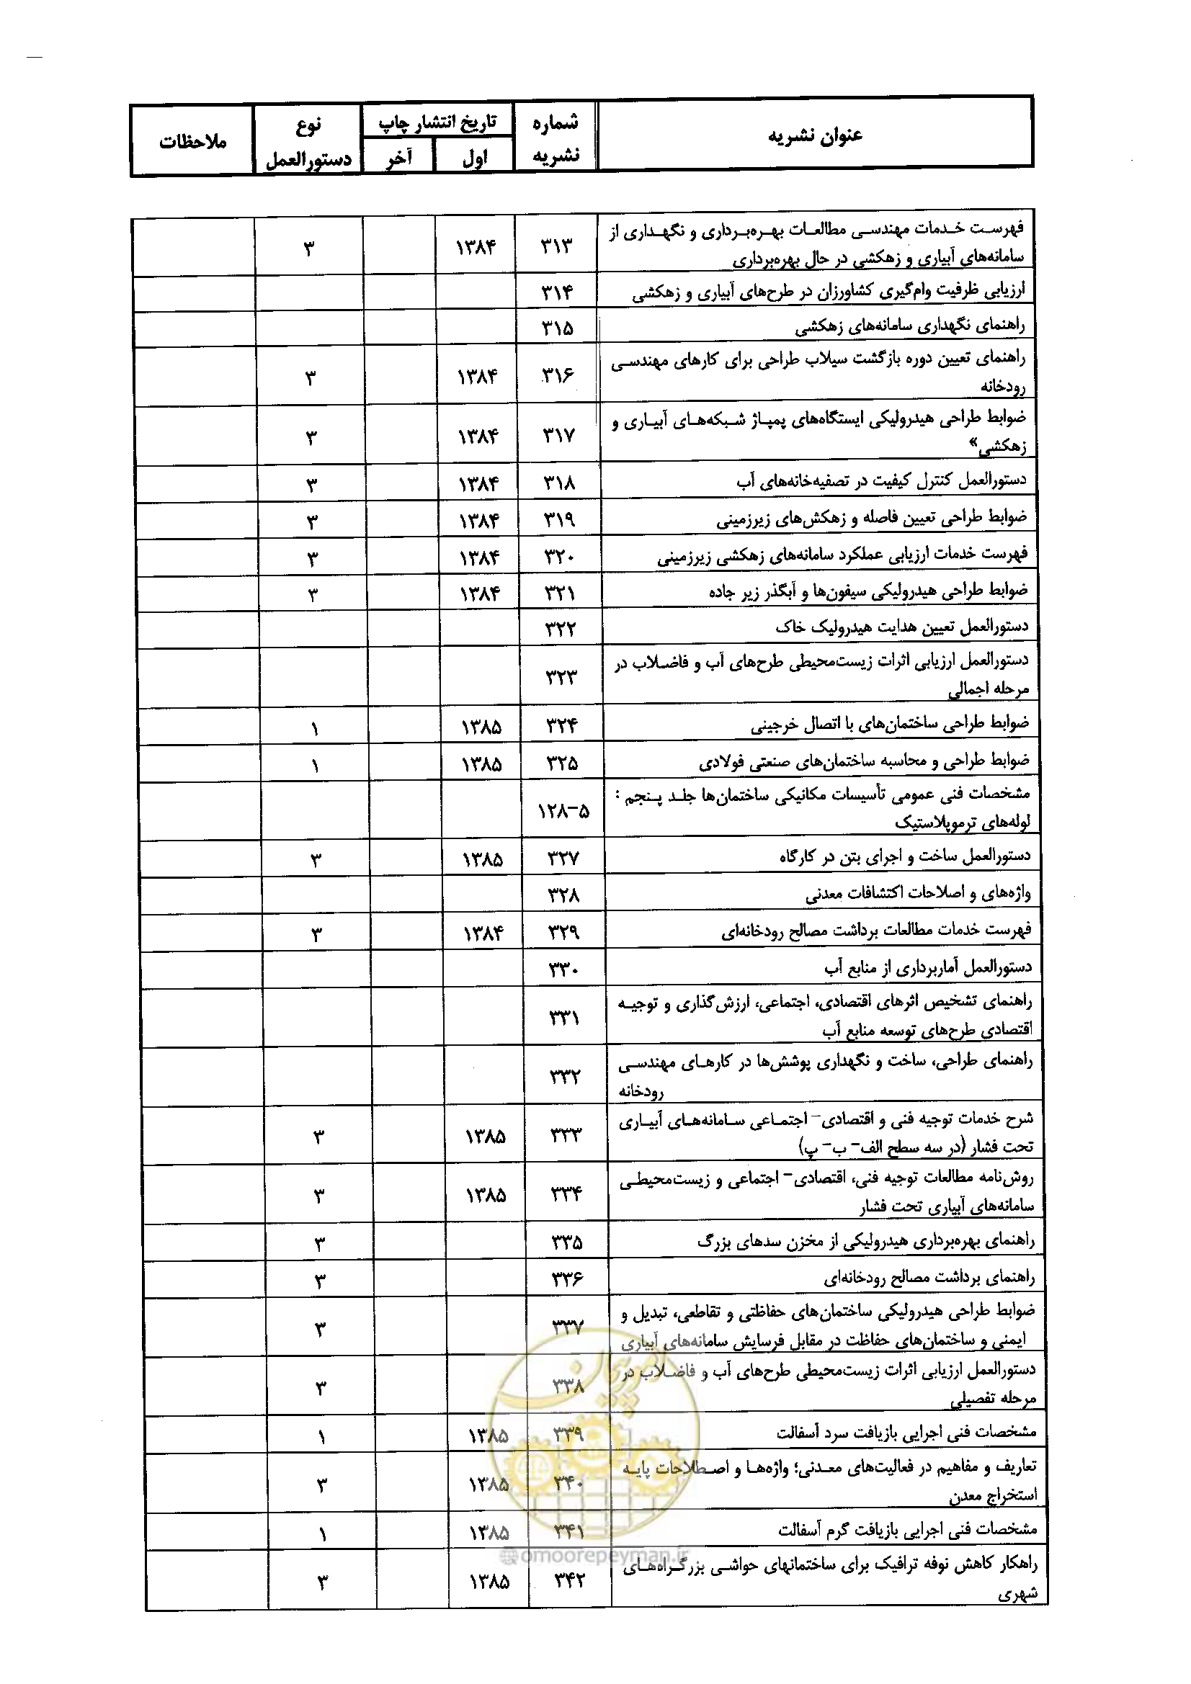 عنوان نشریه
شماره نشریه
تاریخ انتشار چاپ
اول
آخر
نوع دستورالعمل
ملاحظات
فهرست خدمات مهندسی مطالعات بهره‌برداری و نگهداری از
سامانه‌های آبیاری و زهکشی در حال بهره‌برداری
۳۱۳ ۱۳۸۴ ۳
ارزیابی ظرفیت وام‌گیری کشاورزان در طرح‌های آبیاری و زهکشی ۳۱۴
راهنمای نگهداری سامانه‌های زهکشی ۳۱۵
راهنمای تعیین دوره بازگشت سیلاب طراحی برای کارهای مهندسی
رودخانه
۳۱۶ ۱۳۸۴ ۳
ضوابط طراحی هیدرولیکی ایستگاه‌های پمپاژ شبکه‌های آبیاری و
زهکشی»
۳۱۷ ۱۳۸۴ ۳
دستورالعمل کنترل کیفیت در تصفیه‌خانه‌های آب ۳۱۸ ۱۳۸۴ ۳
ضوابط طراحی تعیین فاصله و زهکش‌های زیرزمینی ۳۱۹ ۱۳۸۴ ۳
فهرست خدمات ارزیابی عملکرد سامانه‌های زهکشی زیرزمینی ۳۲۰ ۱۳۸۴ ۳
ضوابط طراحی هیدرولیکی سیفون‌ها و آبگذر زیر جاده ۳۲۱ ۱۳۸۴ ۳
دستورالعمل تعیین هدایت هیدرولیک خاک ۳۲۲
دستورالعمل ارزیابی اثرات زیست‌محیطی طرح‌های آب و فاضلاب در
مرحله اجمالی
۳۲۳
ضوابط طراحی ساختمان‌های با اتصال خرجینی ۳۲۴ ۱۳۸۵ ۱
ضوابط طراحی و محاسبه ساختمان‌های صنعتی فولادی ۳۲۵ ۱۳۸۵ ۱
مشخصات فنی عمومی تأسیسات مکانیکی ساختمان‌ها جلد پنجم :
لوله‌های ترموپلاستیک
۱۲۸-۵
دستورالعمل ساخت و اجرای بتن در کارگاه ۳۲۷ ۱۳۸۵ ۳
واژه‌های و اصلاحات اکتشافات معدنی ۳۲۸
فهرست خدمات مطالعات برداشت مصالح رودخانه‌ای ۳۲۹ ۱۳۸۴ ۳
دستورالعمل آماربرداری از منابع آب ۳۳۰
راهنمای تشخیص اثرهای اقتصادی، اجتماعی، ارزش‌گذاری و توجیه
اقتصادی طرح‌های توسعه منابع آب
۳۳۱
راهنمای طراحی، ساخت و نگهداری پوشش‌ها در کارهای مهندسی
رودخانه
۳۳۲
شرح خدمات توجیه فنی و اقتصادی- اجتماعی سامانه‌های آبیاری
تحت فشار (در سه سطح الف- ب- پ)
۳۳۳ ۱۳۸۵ ۳
روش‌نامه مطالعات توجیه فنی، اقتصادی- اجتماعی و زیست‌محیطی
سامانه‌های آبیاری تحت فشار
۳۳۴ ۱۳۸۵ ۳
راهنمای بهره‌برداری هیدرولیکی از مخزن سدهای بزرگ ۳۳۵ ۳
راهنمای برداشت مصالح رودخانه‌ای ۳۳۶ ۳
ضوابط طراحی هیدرولیکی ساختمان‌های حفاظتی و تقاطعی، تبدیل و
ایمنی و ساختمان‌های حفاظت در مقابل فرسایش سامانه‌های آبیاری
۳۳۷ ۳
دستورالعمل ارزیابی اثرات زیست‌محیطی طرح‌های آب و فاضلاب در
مرحله تفصیلی
۳۳۸ ۳
مشخصات فنی اجرایی بازیافت سرد آسفالت ۳۳۹ ۱۳۸۵ ۱
تعاریف و مفاهیم در فعالیت‌های معدنی؛ واژه‌ها و اصطلاحات پایه
استخراج معدن
۳۴۰ ۱۳۸۵ ۳
مشخصات فنی اجرایی بازیافت گرم آسفالت ۳۴۱ ۱۳۸۵ ۱
راهکار کاهش نوفه ترافیک برای ساختمانهای حواشی بزرگراه‌های
شهری
۳۴۲ ۱۳۸۵ ۳
امور پیمان
omoorepeyman.ir